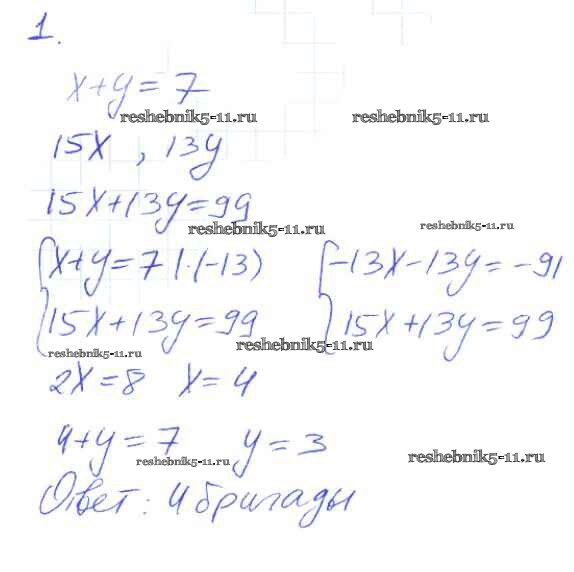 1.
x+y=7
reshebnik5-11.ru reshebnik5-11.ru
15x , 13y
15x+13y=99
reshebnik5-11.ru reshebnik5-11.ru
{x+y=7 |·(-13) {-13x-13y=-91
15x+13y=99 15x+13y=99
reshebnik5-11.ru reshebnik5-11.ru
2x=8 x=4
4+y=7 y=3
reshebnik5-11.ru reshebnik5-11.ru
Ответ: 4 бригады